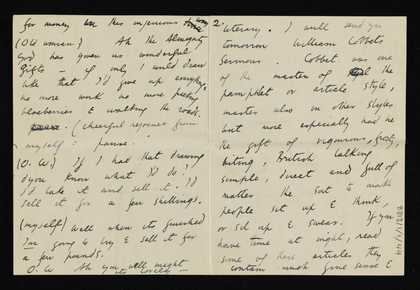 for money in this injenious way
(Old woman) Ah the Almighty
God has given us wonderful
gifts — if only I could draw
like that I'd give up everything,
no more work no more picking
blueberries & walking the roads.
(cheerful response from
myself: pause.
(O. W) If I had that drawing
d'you know what I'd do,
I'd take it and sell it. I'd
sell it for a few shillings.
(myself) Well when its finished
I'm going to try & sell it for
a few pounds.
O. W Ah you well might
2.
literary. I will send you
tomorrow William Cobbets
Sermons. Cobbet was one
of the masters of the
pamphlet or article style,
master also in other styles
but more especially had he
the gift of vigourous, gusty,
biting, British talking
simple, direct and full of
matter the sort to make
people set up & think,
or sit up & swear. If you
have time at night, read
some of these articles they
contain much good sense &